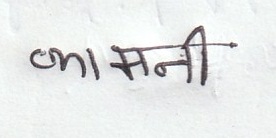 लामनी